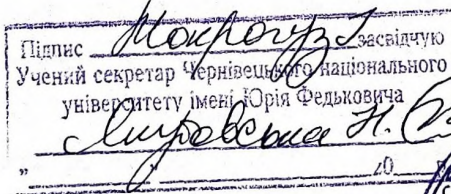 Підпис Мокрогуз І засвідчую
Учений секретар Чернівецького національного
університету імені Юрія Федьковича
Якубовська Н.
" " 20 р.